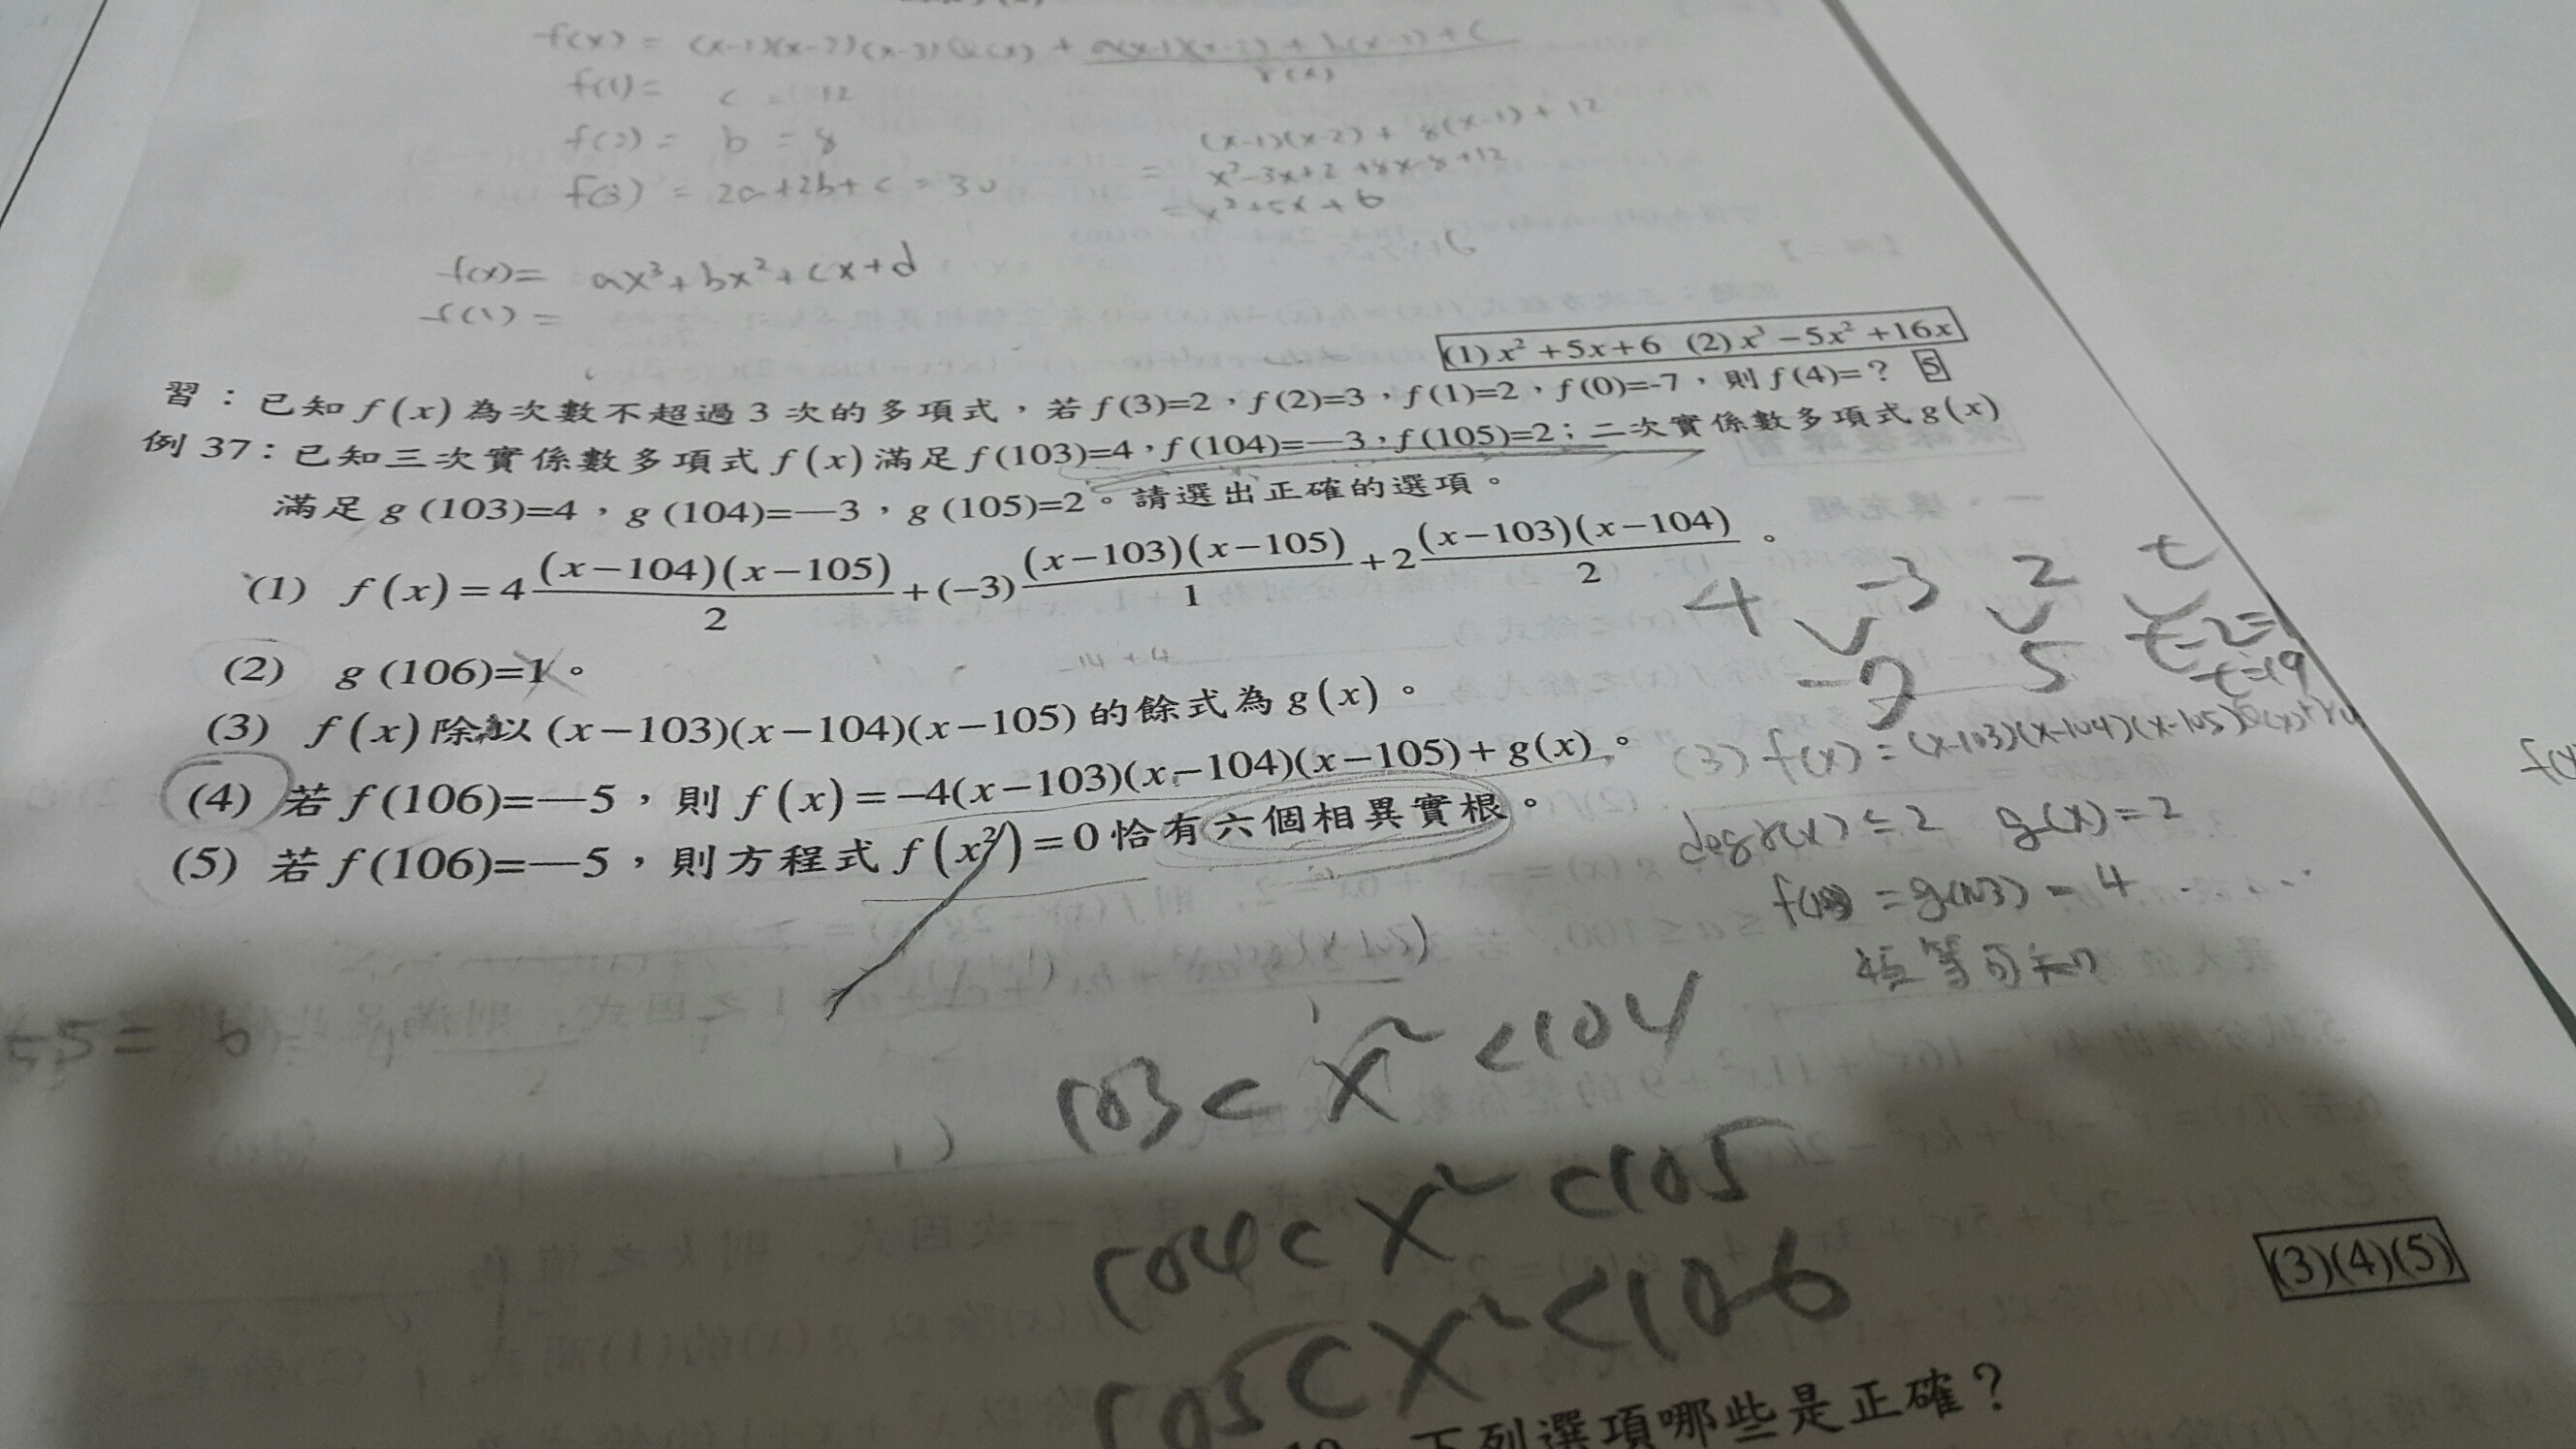 f(x) = (x-1)(x-2)(x-3)Q(x) + a(x-1)(x-2) + b(x-1) + c
r(x)
f(1) = c = 12
f(2) = b = 8
f(3) = 2a+2b+c = 30
(x-1)(x-2) + 8(x-1) + 12
= x²-3x+2+8x-8+12
= x²+5x+6
f(x) = ax³+bx²+cx+d
f(1) =
(1) x²+5x+6 (2) x³-5x²+16x
習：已知 f(x) 為次數不超過 3 次的多項式，若 f(3)=2，f(2)=3，f(1)=2，f(0)=-7，則 f(4)=？ 5
例 37：已知三次實係數多項式 f(x) 滿足 f(103)=4，f(104)=—3，f(105)=2；二次實係數多項式 g(x)
滿足 g(103)=4，g(104)=—3，g(105)=2。請選出正確的選項。
(1) f(x)=4 (x-104)(x-105)/2 +(-3) (x-103)(x-105)/1 +2 (x-103)(x-104)/2 。
(2) g(106)=1。
-14+4
(3) f(x) 除以 (x-103)(x-104)(x-105) 的餘式為 g(x)。
(4) 若 f(106)=—5，則 f(x)=-4(x-103)(x-104)(x-105)+g(x)。
(5) 若 f(106)=—5，則方程式 f(x²)=0 恰有六個相異實根。
4 -3 2 t
-7 5 t-2=
t=19
(3) f(x) = (x-103)(x-104)(x-105)Q(x)+r(x)
deg r(x) ≤ 2 g(x) = 2
f(103) = g(103) = 4 ...
恆等可知
103 < x² < 104
104 < x² < 105
105 < x² < 106
(3)(4)(5)
下列選項哪些是正確？